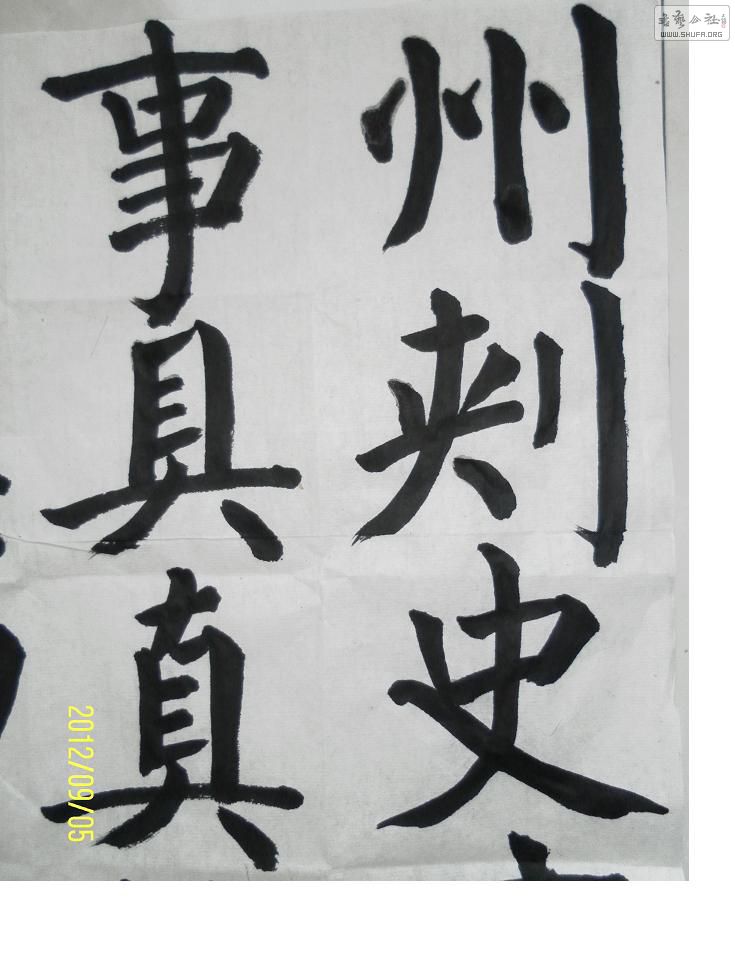 州刺史
事具真
2012/09/05
书艺公社
WWW.SHUFA.ORG